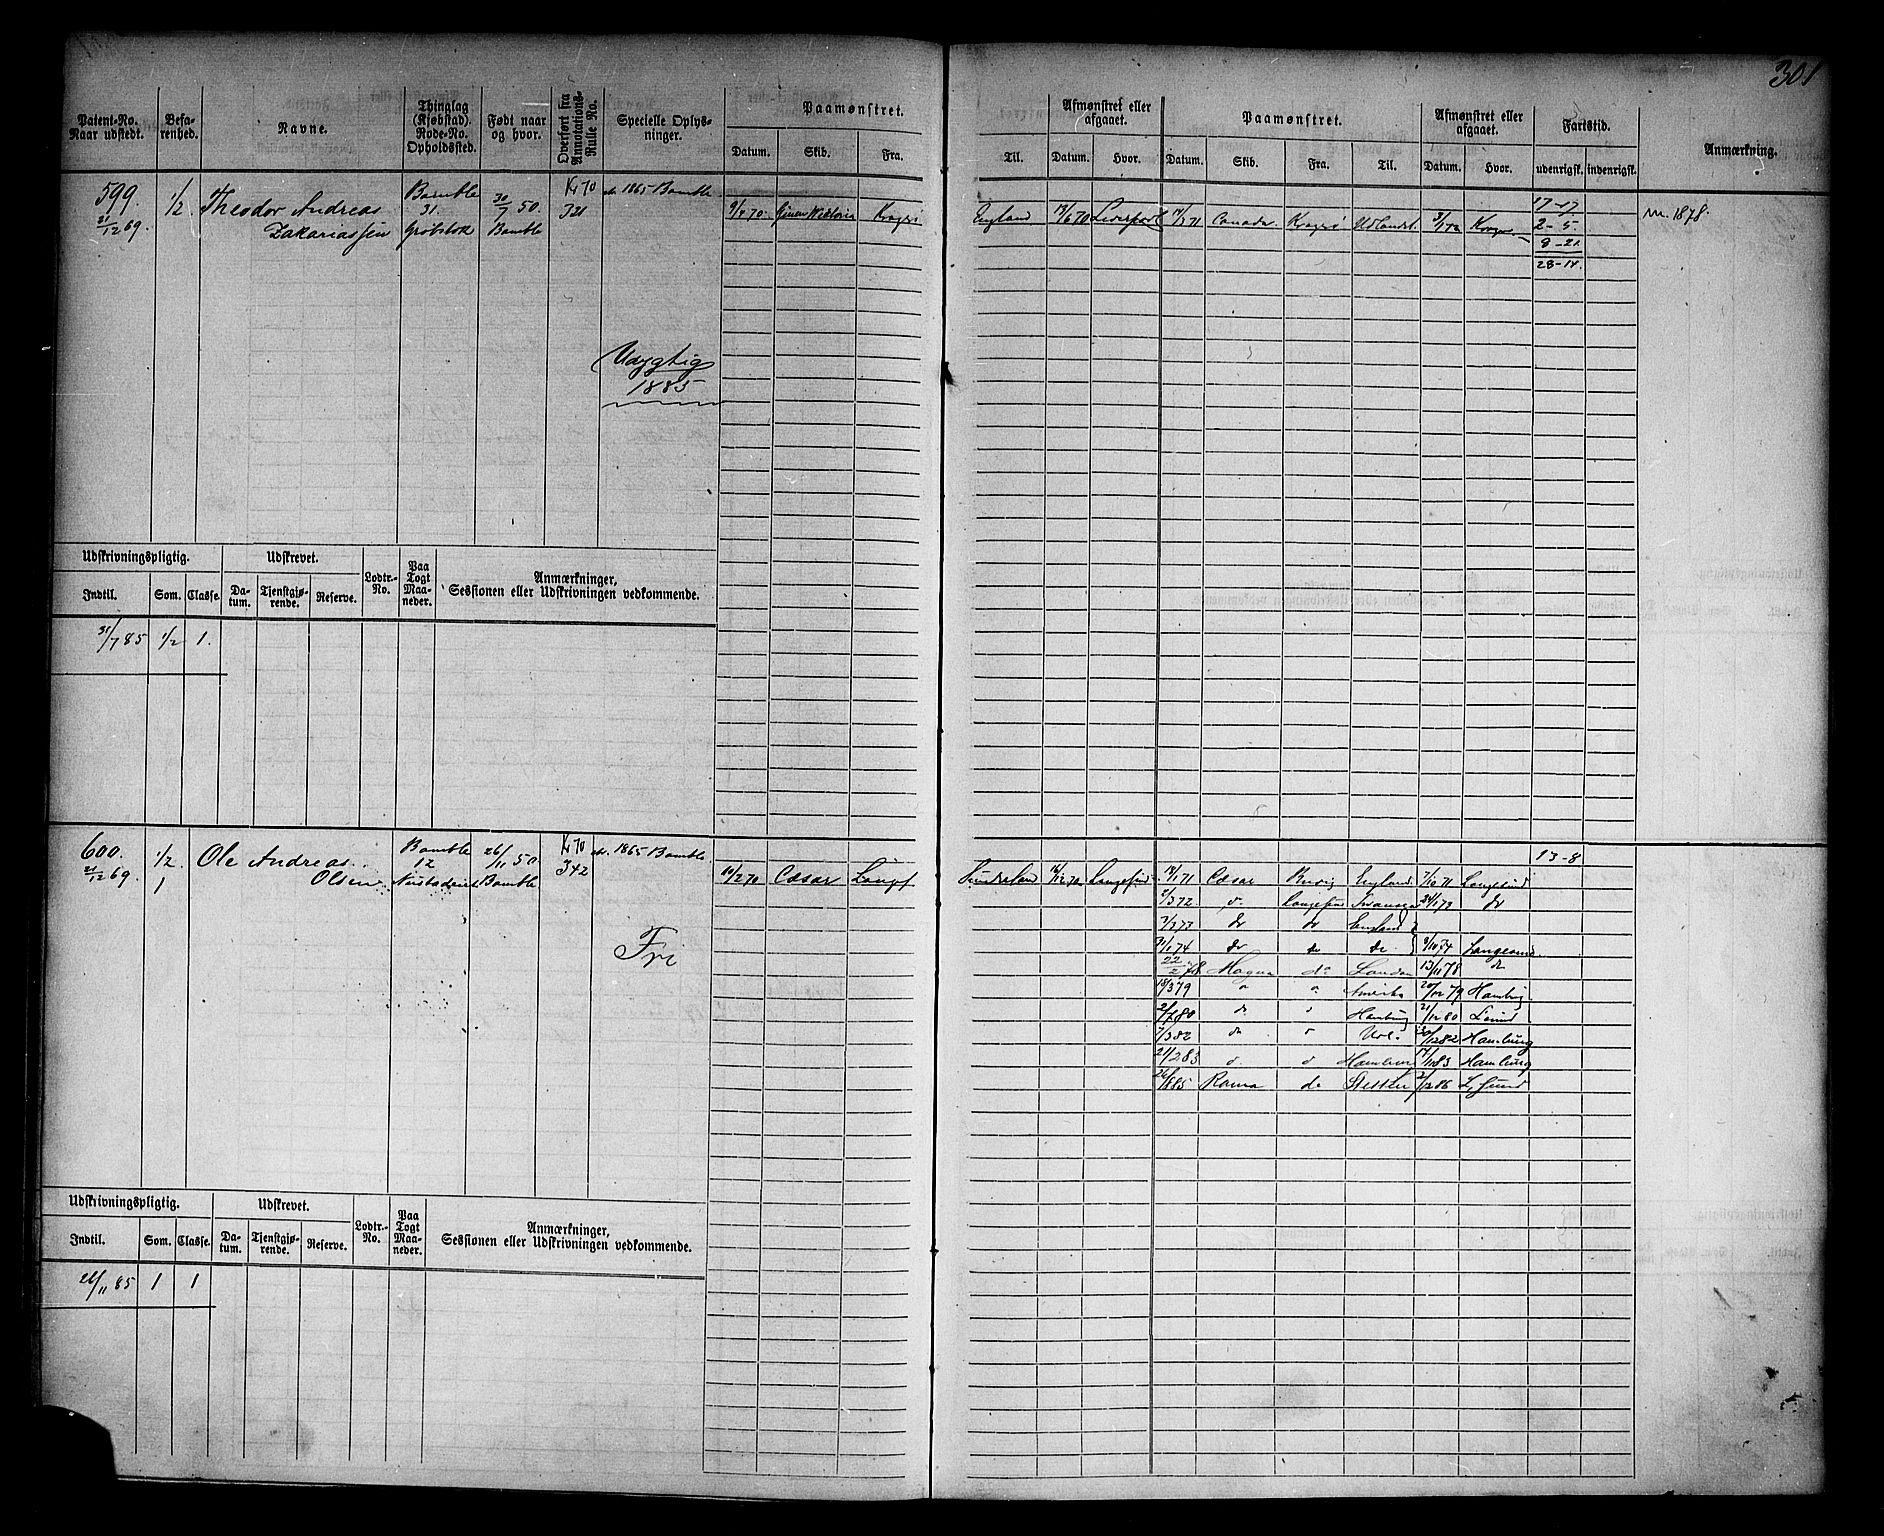 301
Patent-No. Naar udstedt.
Befarenhed.
Navne.
Thinglag (Kjøbstad). Rode-No. Opholdssted.
Født naar og hvor.
Overført fra Annotations-Rulle No.
Specielle Oplysninger.
Paamønstret.
Datum. Skib. Fra. Til.
Afmønstret eller afgaaet.
Datum. Hvor.
Paamønstret.
Datum. Skib. Fra. Til.
Afmønstret eller afgaaet.
Datum. Hvor.
Fartstid.
udenrigsk. indenrigsk.
Anmærkning.
599. 21/12 69.
1/2
Theodor Andreas
Zakariassen
Bamble
31.
30/7 50.
Bamble
Kr 70
321
1865 Bamble
9/4 70. Kragerø England 13/6 70 Liverpool 14/3 71 Canada Kragerø Udlandet. 3/1 72
17-17
2-5.
8-21
28-14.
1878.
Udygtig
1885
Udskrivningspligtig. Udskrevet. Lodtr.-No. Paa Togt Maaneder. Anmærkninger, Sessionen eller Udskrivningen vedkommende.
Indtil. Som. Classe. Datum. Tjenstgjørende. Reserve.
31/7 85 1/2 1.
600. 21/12 69.
1/2
1
Ole Andreas
Olsen
Bamble
12
26/11 50.
Bamble
Kr 70
342
1865 Bamble
Fri
13-8
Cæsar Langs Sunderland Langesund Cæsar Brevig England. 7/10 71 Langesund
2/3 72 do Langesund Swansea do
3/3 73 do do England
31/1 74 do do do 9/10 74 Langesund
22/2 78 Magna do London 13/11 78 do
18/3 79 Amerika 20/12 79 Hamburg
2/7 80 do Hamburg 21/12 80
7/3 82 do 20/12 82 Hamburg
21/2 83 Hamburg Hamburg
26/8 85 Roma do Stettin 2/12 86
Udskrivningspligtig. Udskrevet. Lodtr.-No. Paa Togt Maaneder. Anmærkninger, Sessionen eller Udskrivningen vedkommende.
Indtil. Som. Classe. Datum. Tjenstgjørende. Reserve.
26/11 85 1 1